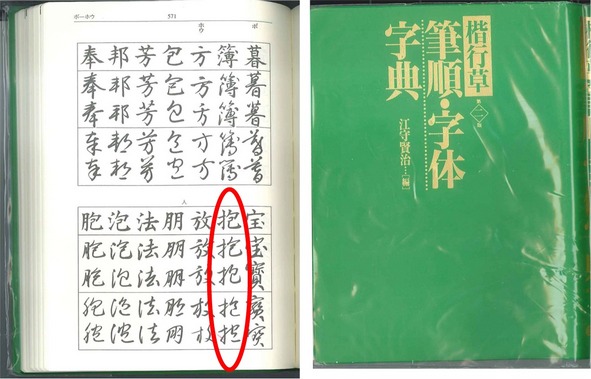 ボーホウ
571
ボ
ホウ
暮暮暮暮暮
簿簿簿簿簿
方方方方方
包包包包包
芳芳芳芳芳
邦邦邦邦邦
奉奉奉奉奉
人
宝宝寶寶宝
抱抱抱抱抱
放放放放放
朋朋朋朋朋
法法法法法
泡泡泡泡泡
胞胞胞胞胞
楷行草
筆順・字体
字典
第二版
江守賢治…[編]